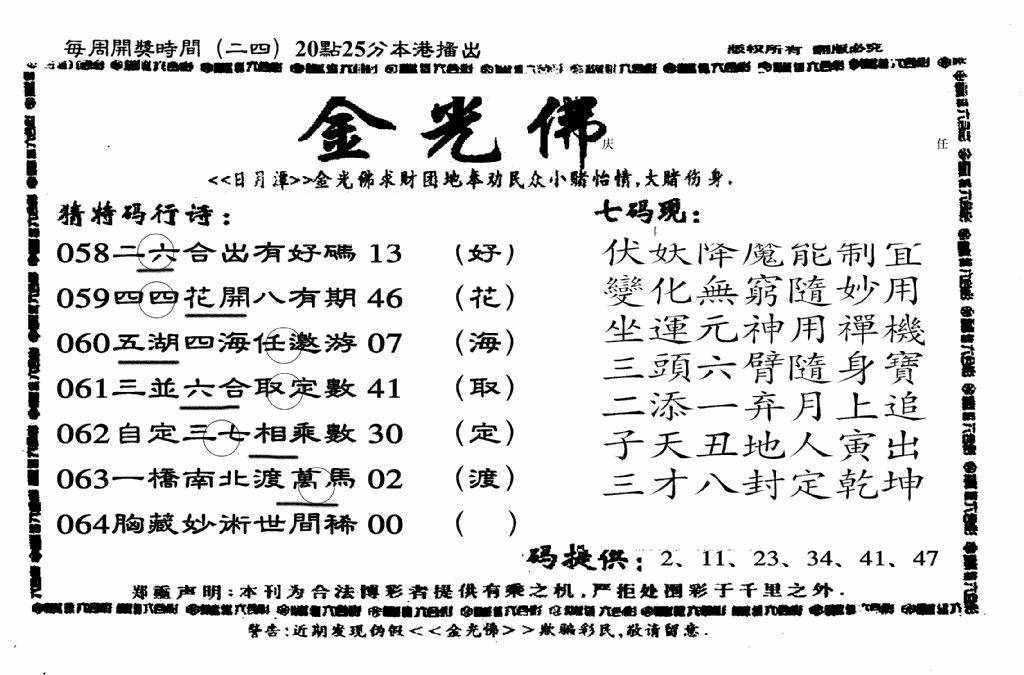 每周開獎時間（二四）20點25分本港播出
版权所有 翻版必究
金光佛
庆
任
<<日月潭>>金光佛求财团地奉劝民众小赌怡情,大赌伤身.
猜特码行诗：
058二六合出有好碼 13 （好）
059四四花開八有期 46 （花）
060五湖四海任邀游 07 （海）
061三並六合取定數 41 （取）
062自定三七相乘數 30 （定）
063一橋南北渡萬馬 02 （渡）
064胸藏妙術世間稀 00 （ ）
七码现：
伏妖降魔能制宜
變化無窮隨妙用
坐運元神用禪機
三頭六臂隨身寶
二添一弃月上追
子天丑地人寅出
三才八封定乾坤
码提供：2、11、23、34、41、47
郑重声明:本刊为合法博彩者提供有乘之机,严拒处圈彩于千里之外.
警告:近期发现伪假<<金光佛>>欺骗彩民,敬请留意.